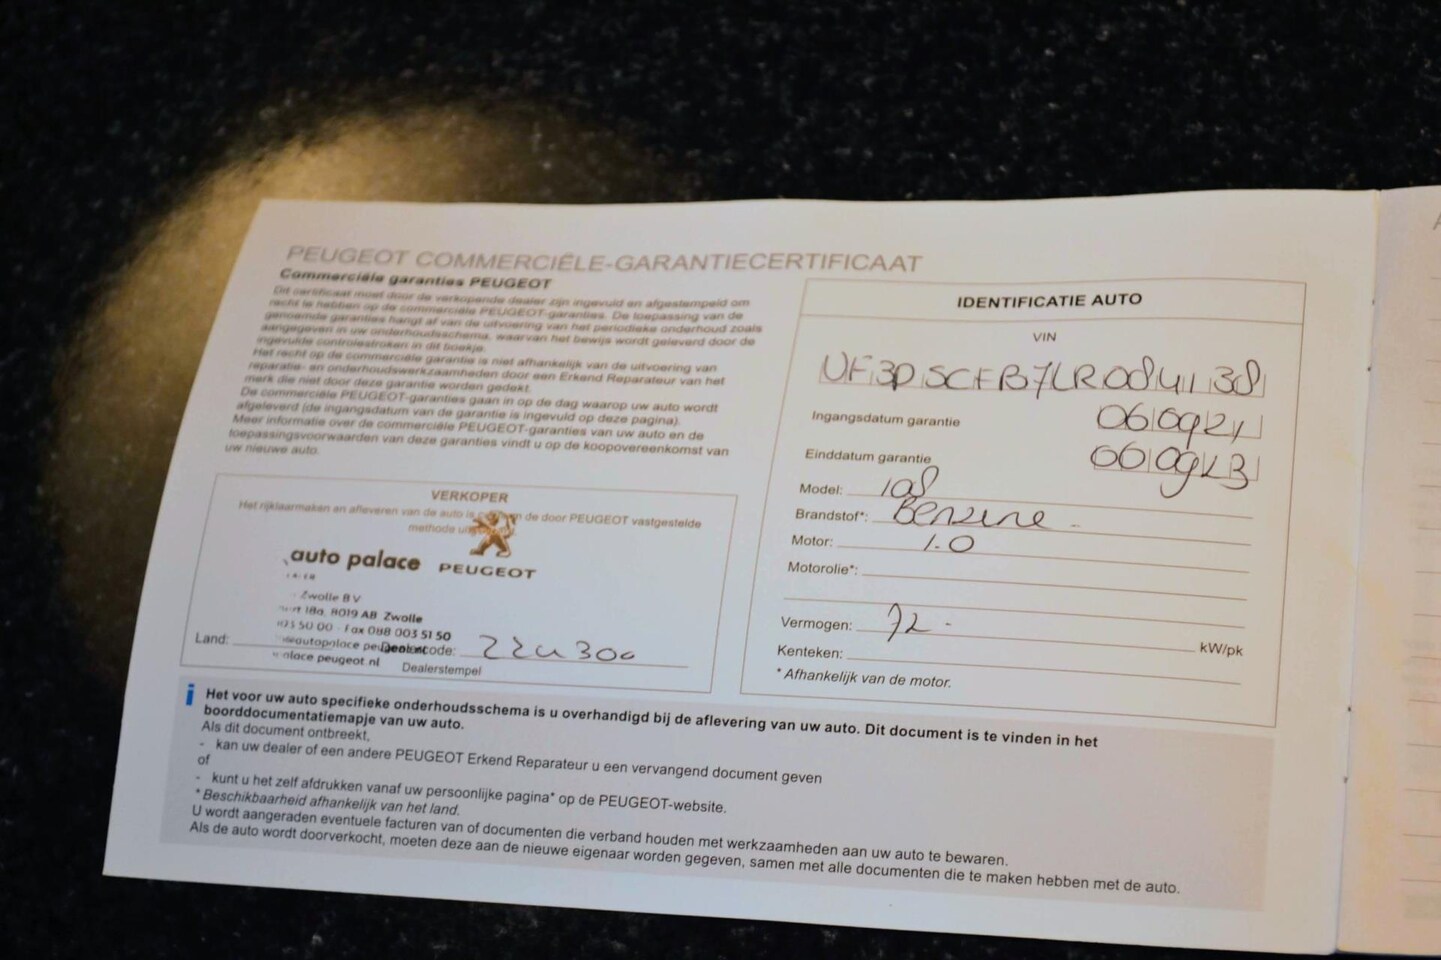 PEUGEOT COMMERCIËLE-GARANTIECERTIFICAAT
Commerciële garanties PEUGEOT
Dit certificaat moet door de verkopende dealer zijn ingevuld en afgestempeld om
recht te hebben op de commerciële PEUGEOT-garanties. De toepassing van de
genoemde garanties hangt af van de uitvoering van het periodieke onderhoud zoals
aangegeven in uw onderhoudsschema, waarvan het bewijs wordt geleverd door de
ingevulde controlestroken in dit boekje.
Het recht op de commerciële garantie is niet afhankelijk van de uitvoering van
reparatie- en onderhoudswerkzaamheden door een Erkend Reparateur van het
merk die niet door deze garantie worden gedekt.
De commerciële PEUGEOT-garanties gaan in op de dag waarop uw auto wordt
afgeleverd (de ingangsdatum van de garantie is ingevuld op deze pagina).
Meer informatie over de commerciële PEUGEOT-garanties van uw auto en de
toepassingsvoorwaarden van deze garanties vindt u op de koopovereenkomst van
uw nieuwe auto.
VERKOPER
Het rijklaarmaken en afleveren van de auto is de door PEUGEOT vastgestelde
methode
auto palace PEUGEOT
Zwolle BV
18a, 8019 AB Zwolle
50 00 - Fax 088 003 51 50
palace peugeot.nl
Land:
Dealercode: 22u300
Dealerstempel
IDENTIFICATIE AUTO
VIN
VF3PSCFB7LR084138
Ingangsdatum garantie 060921
Einddatum garantie 060923
Model: 108
Brandstof*: Benzine
Motor: 1.0
Motorolie*:
Vermogen: 72 kW/pk
Kenteken:
* Afhankelijk van de motor.
i Het voor uw auto specifieke onderhoudsschema is u overhandigd bij de aflevering van uw auto. Dit document is te vinden in het
boorddocumentatiemapje van uw auto.
Als dit document ontbreekt,
- kan uw dealer of een andere PEUGEOT Erkend Reparateur u een vervangend document geven
of
- kunt u het zelf afdrukken vanaf uw persoonlijke pagina* op de PEUGEOT-website.
* Beschikbaarheid afhankelijk van het land.
U wordt aangeraden eventuele facturen van of documenten die verband houden met werkzaamheden aan uw auto te bewaren.
Als de auto wordt doorverkocht, moeten deze aan de nieuwe eigenaar worden gegeven, samen met alle documenten die te maken hebben met de auto.